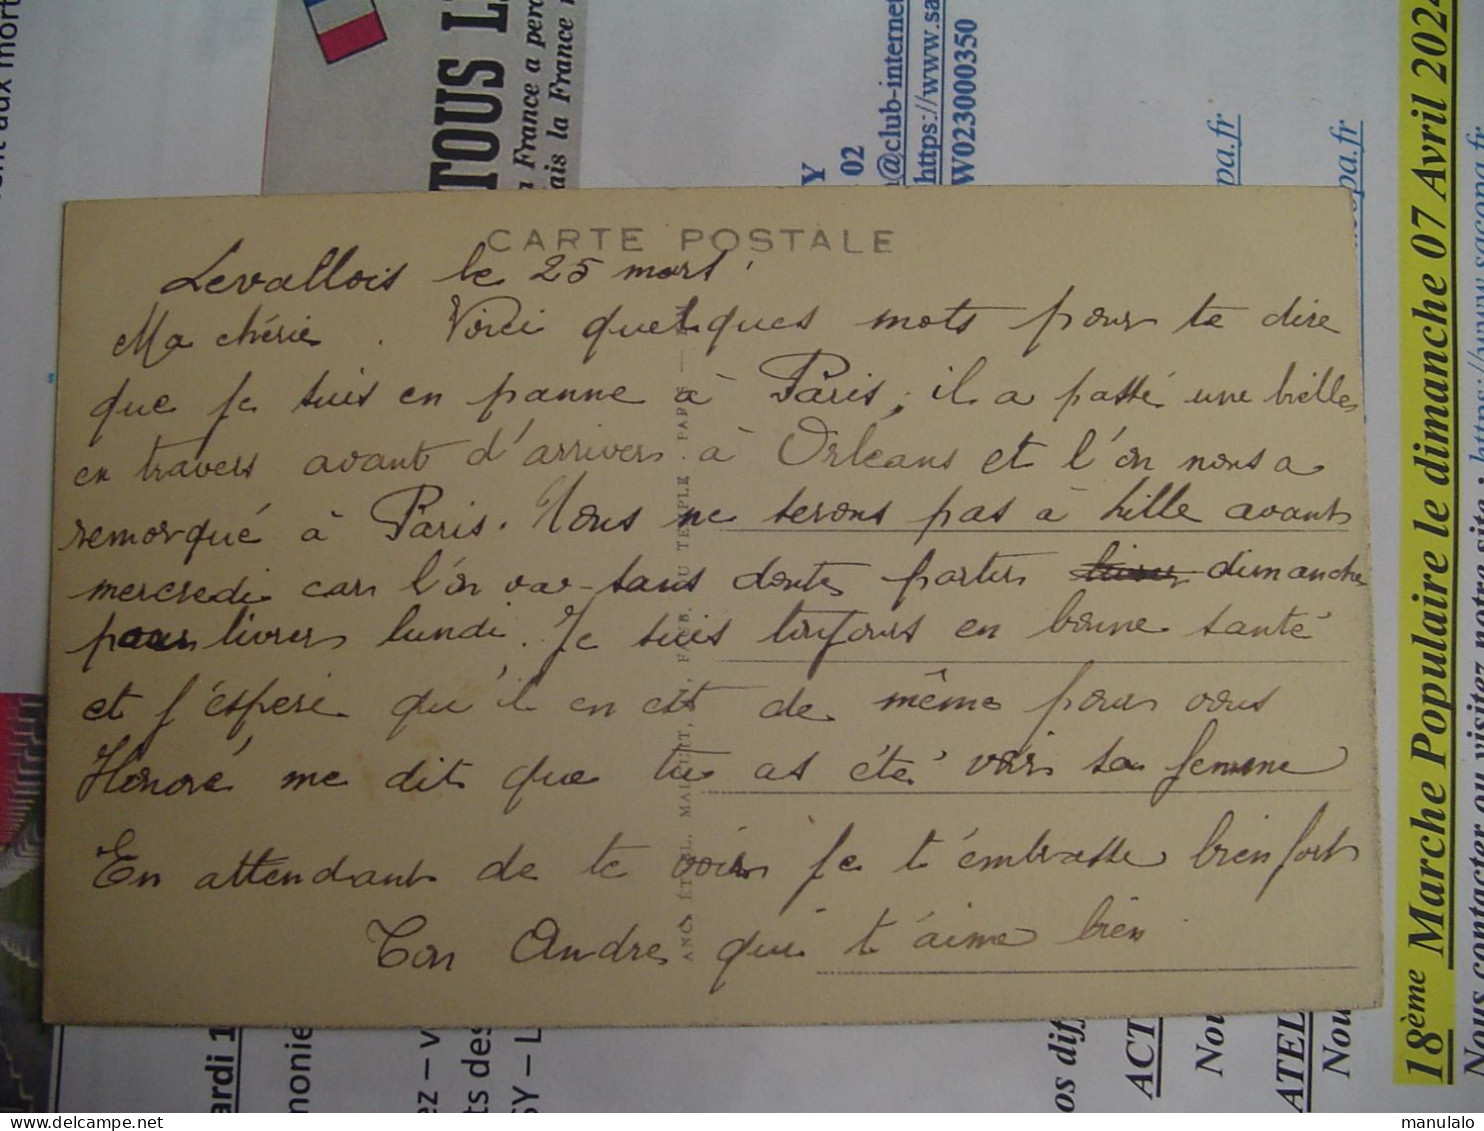 CARTE POSTALE
Levallois le 25 mars
Ma chérie. Voici quelques mots pour te dire
que je suis en panne à Paris, il a passé une bielle
en travers avant d'arriver à Orléans et l'on nous a
remorqué à Paris. Nous ne serons pas à Lille avant
mercredi car l'on va sans doute partir dimanche
pour livrer lundi. Je suis toujours en bonne santé
et j'éspère qu'il en est de même pour vous
Honoré me dit que tu as été voir sa femme
En attendant de te voir je t'embrasse bien fort
Ton André qui t'aime bien
TEMPLE PARIS
TOUS
France a perd
ais la France
Y
02
@club-internet
https://www.sa
W023000350
opa.fr
18ème Marche Populaire le dimanche 07 Avril 2024
Nous contacter ou visitez notre site : https://www.sacopa.fr
ent aux mort
ardi 1
monie
ez – v
ts des
SY – L
os diff
ACT
Nou
ATEL
Nou
www.delcampe.net
manulalo